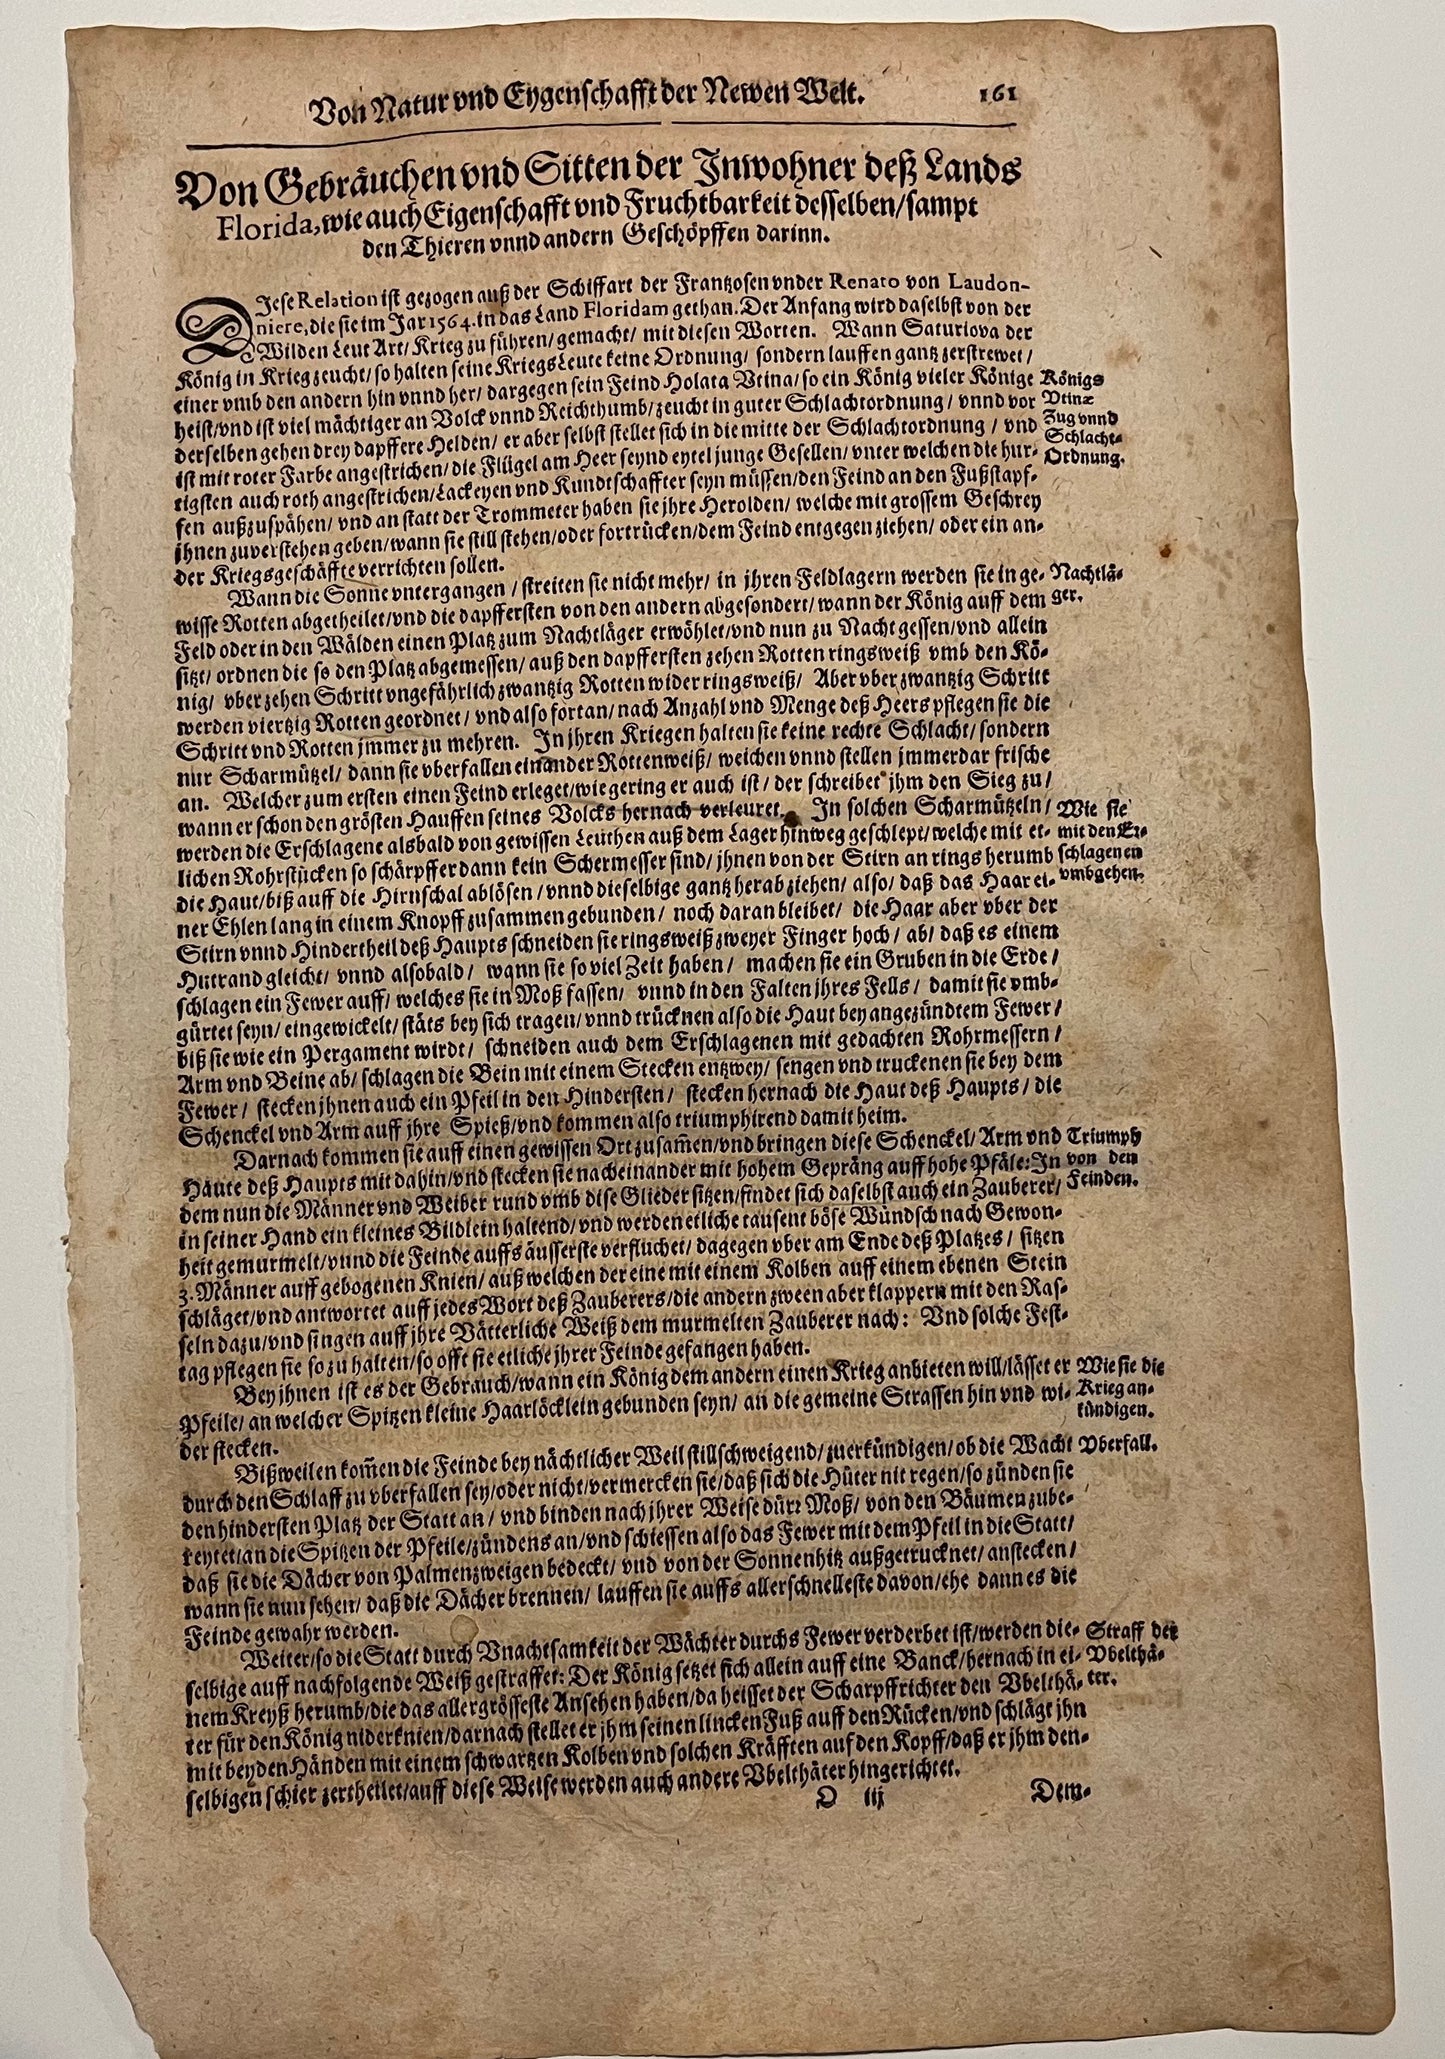 Von Natur vnd Eygenschafft der Newen Welt. 161
Von Gebräuchen vnd Sitten der Inwohner deß Lands
Florida, wie auch Eigenschafft vnd Fruchtbarkeit desselben/ sampt
den Thieren vnnd andern Geschöpffen darinn.
DIese Relation ist gezogen auß der Schiffart der Frantzosen vnder Renato von Laudon-
niere, die sie im Jar 1564. in das Land Floridam gethan. Der Anfang wird daselbst von der
Wilden Leut Art/ Krieg zu führen/ gemacht/ mit diesen Worten. Wann Saturiova der
König in Krieg zeucht/ so halten seine KriegsLeute keine Ordnung/ sondern lauffen gantz zerstrewet/
einer vmb den andern hin vnnd her/ dargegen sein Feind Holata Vtina/ so ein König vieler Könige
heist/ vnd ist viel mächtiger an Volck vnnd Reichthumb/ zeucht in guter Schlachtordnung/ vnnd vor
derselben gehen drey dapffere Helden/ er aber selbst stellet sich in die mitte der Schlachtordnung/ vnd
ist mit roter Farbe angestrichen/ die Flügel am Heer seynd eytel junge Gesellen/ vnter welchen die hur-
tigsten auch roth angestrichen/ Lackeyen vnd Kundtschaffter seyn müssen/ den Feind an den Fußstapf-
fen außzuspähen/ vnd an statt der Trommeter haben sie jhre Herolden/ welche mit grossem Geschrey
jhnen zuverstehen geben/ wann sie still stehen/ oder fortrücken/ dem Feind entgegen ziehen/ oder ein an-
der Kriegsgeschäffte verrichten sollen.
Königs
Vtinæ
Zug vnnd
Schlacht-
Ordnung.
Wann die Sonne vntergangen/ streiten sie nicht mehr/ in jhren Feldlagern werden sie in ge-
wisse Rotten abgetheilet/ vnd die dapffersten von den andern abgesondert/ wann der König auff dem
Feld oder in den Wälden einen Platz zum Nachtläger erwöhlet/ vnd nun zu Nacht gessen/ vnd allein
sitzt/ ordnen die so den Platz abgemessen/ auß den dapffersten zehen Rotten ringsweiß vmb den Kö-
nig/ vber zehen Schritt vngefährlich zwantzig Rotten wider ringsweiß/ Aber vber zwantzig Schritt
werden viertzig Rotten geordnet/ vnd also fortan/ nach Anzahl vnd Menge deß Heers pflegen sie die
Schritt vnd Rotten jmmer zu mehren. In jhren Kriegen halten sie keine rechte Schlacht/ sondern
nur Scharmützel/ dann sie vberfallen einander Rottenweiß/ weichen vnnd stellen jmmerdar frische
an. Welcher zum ersten einen Feind erleget/ wie gering er auch ist/ der schreibet jhm den Sieg zu/
wann er schon den grösten Hauffen seines Volcks hernach verleuret. In solchen Scharmützeln/
werden die Erschlagene alsbald von gewissen Leuthen auß dem Lager hinweg geschlept/ welche mit et-
lichen Rohrstücken so schärpffer dann kein Schermesser sind/ jhnen von der Stirn an rings herumb
die Haut/ biß auff die Hirnschal ablösen/ vnnd dieselbige gantz herab ziehen/ also/ daß das Haar ei-
ner Ehlen lang in einem Knopff zusammen gebunden/ noch daran bleibet/ die Haar aber vber der
Stirn vnnd Hindertheil deß Haupts schneiden sie ringsweiß zweyer Finger hoch/ ab/ daß es einem
Hutrand gleicht/ vnnd alsobald/ wann sie so viel Zeit haben/ machen sie ein Gruben in die Erde/
schlagen ein Fewer auff/ welches sie in Moß fassen/ vnnd in den Falten jhres Fells/ damit sie vmb-
gürtet seyn/ eingewickelt/ stäts bey sich tragen/ vnnd trücknen also die Haut bey angezündtem Fewer/
biß sie wie ein Pergament wirdt/ schneiden auch dem Erschlagenen mit gedachten Rohrmessern/
Arm vnd Beine ab/ schlagen die Bein mit einem Stecken entzwey/ sengen vnd truckenen sie bey dem
Fewer/ stecken jhnen auch ein Pfeil in den Hindersten/ stecken hernach die Haut deß Haupts/ die
Schenckel vnd Arm auff jhre Spieß/ vnd kommen also triumphirend damit heim.
Nachtlä-
ger.
Wie sie
mit den Er-
schlagenen
vmbgehen.
Darnach kommen sie auff einen gewissen Ort zusam̃en/ vnd bringen diese Schenckel/ Arm vnd
Häute deß Haupts mit dahin/ vnd stecken sie nacheinander mit hohem Gepräng auff hohe Pfäle: In
dem nun die Männer vnd Weiber rund vmb dise Glieder sitzen/ findet sich daselbst auch ein Zauberer/
in seiner Hand ein kleines Bildlein haltend/ vnd werden etliche tausent böse Wündsch nach Gewon-
heit gemurmelt/ vnnd die Feinde auffs äusserste verfluchet/ dagegen vber am Ende deß Platzes/ sitzen
3. Männer auff gebogenen Knien/ auß welchen der eine mit einem Kolben auff einem ebenen Stein
schläget/ vnd antwortet auff jedes Wort deß Zauberers/ die andern zween aber klappern mit den Ras-
seln dazu/ vnd singen auff jhre Vätterliche Weiß dem murmelten Zauberer nach: Vnd solche Fest-
tag pflegen sie so zu halten/ so offt sie etliche jhrer Feinde gefangen haben.
Triumph
von den
Feinden.
Bey jhnen ist es der Gebrauch/ wann ein König dem andern einen Krieg anbieten will/ lässet er
Pfeile/ an welcher Spitzen kleine Haarlöcklein gebunden seyn/ an die gemeine Strassen hin vnd wi-
der stecken.
Wie sie die
Krieg an-
kündigen.
Bißweilen kom̃en die Feinde bey nächtlicher Weil stillschweigend/ zuerkündigen/ ob die Wacht
durch den Schlaff zu vberfallen sey/ oder nicht/ vermercken sie/ daß sich die Hüter nit regen/ so zünden sie
den hindersten Platz der Statt an/ vnd binden nach jhrer Weise dürr Moß/ von den Bäumen zube-
reytet/ an die Spitzen der Pfeile/ zündens an/ vnd schiessen also das Fewer mit dem Pfeil in die Statt/
daß sie die Dächer von Palmenzweigen bedeckt/ vnd von der Sonnenhitz außgetrucknet/ anstecken/
wann sie nun sehen/ daß die Dächer brennen/ lauffen sie auffs allerschnelleste davon/ ehe dann es die
Feinde gewahr werden.
Vberfall.
Weiter/ so die Statt durch Vnachtsamkeit der Wächter durchs Fewer verderbet ist/ werden die-
selbige auff nachfolgende Weiß gestraffet: Der König setzet sich allein auff eine Banck/ hernach in ei-
nem Kreyß herumb/ die das allergrösseste Ansehen haben/ da heisset der Scharpffrichter den Vbelthä-
ter für den König niderknien/ darnach stellet er jhm seinen lincken Fuß auff den Rücken/ vnd schlägt jhn
mit beyden Händen mit einem schwartzen Kolben vnd solchen Kräfften auf den Kopff/ daß er jhm den-
selbigen schier zertheilet/ auff diese Weise werden auch andere Vbelthäter hingerichtet.
Straff der
Vbelthä-
ter.
O iij Dem-